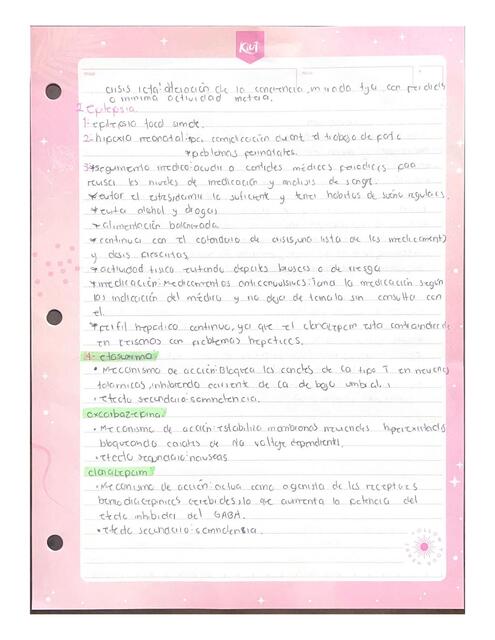 KiUT
crisis icta: alteración de la conciencia, mirada fija con perdida
o minima actividad motora.
2. Epilepsia
1- epilepsia focal simple.
2- hipoxia neonatal: por complicación durante el trabajo de parto
*problemas perinatales.
3- *seguimiento medico: acudir a controles médicos periodicos para
revisar los niveles de medicación y analisis de sangre.
*evitar el estres, dormir lo suficiente y tener habitos de sueño regulares.
*evitar alcohol y drogas
*alimentación balanceada.
*continuar con el calendario de crisis, una lista de los medicamentos
y dosis prescritas
*actividad fisica evitando deportes bruscos o de riesgo
*medicación: Medicamentos anticonvulsivos: Toma la medicación según
las indicación del médico y no deja de tomarlo sin consulta con
el.
*perfil hepatico continuo, ya que el clonazepam esta contraindicado
en personas con problemas hepaticos.
4- etosuximida
• Mecanismo de acción: Bloquea los canales de Ca tipo T en neuronas
talamicas, inhibiendo corriente de Ca de bajo umbral.
• efecto secundario: somnolencia.
oxcarbazepina
• Mecanismo de acción: estabiliza membranas neuronales hiperexcitadas
bloqueando canales de Na voltaje dependientes.
• efecto secundario: nauseas
clonazepam
• Mecanismo de acción: actua como agonista de los receptores
benzodiacepinicos cerebrales, lo que aumenta la potencia del
efecto inhibidor del GABA.
• efecto secundario: somnolencia.